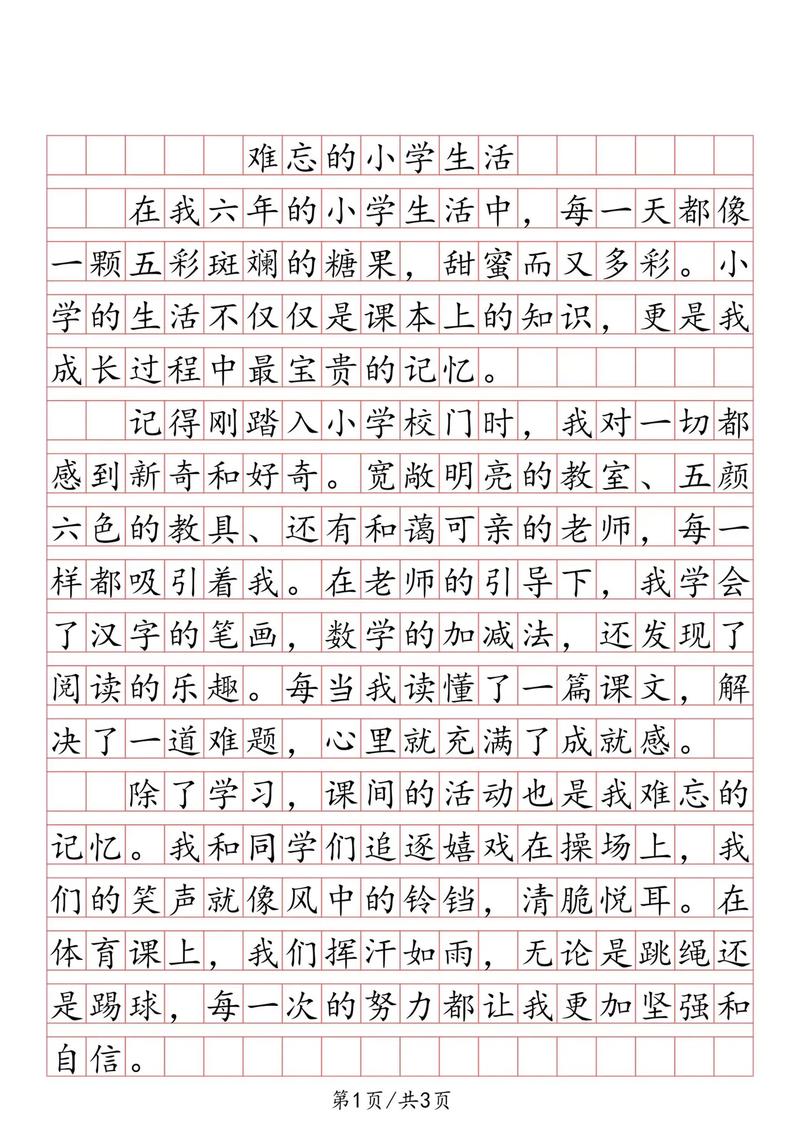 难忘的小学生活
在我六年的小学生活中，每一天都像
一颗五彩斑斓的糖果，甜蜜而又多彩。小
学的生活不仅仅是课本上的知识，更是我
成长过程中最宝贵的记忆。
记得刚踏入小学校门时，我对一切都
感到新奇和好奇。宽敞明亮的教室、五颜
六色的教具、还有和蔼可亲的老师，每一
样都吸引着我。在老师的引导下，我学会
了汉字的笔画，数学的加减法，还发现了
阅读的乐趣。每当我读懂了一篇课文，解
决了一道难题，心里就充满了成就感。
除了学习，课间的活动也是我难忘的
记忆。我和同学们追逐嬉戏在操场上，我
们的笑声就像风中的铃铛，清脆悦耳。在
体育课上，我们挥汗如雨，无论是跳绳还
是踢球，每一次的努力都让我更加坚强和
自信。
第1页/共3页